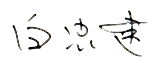 白忠建